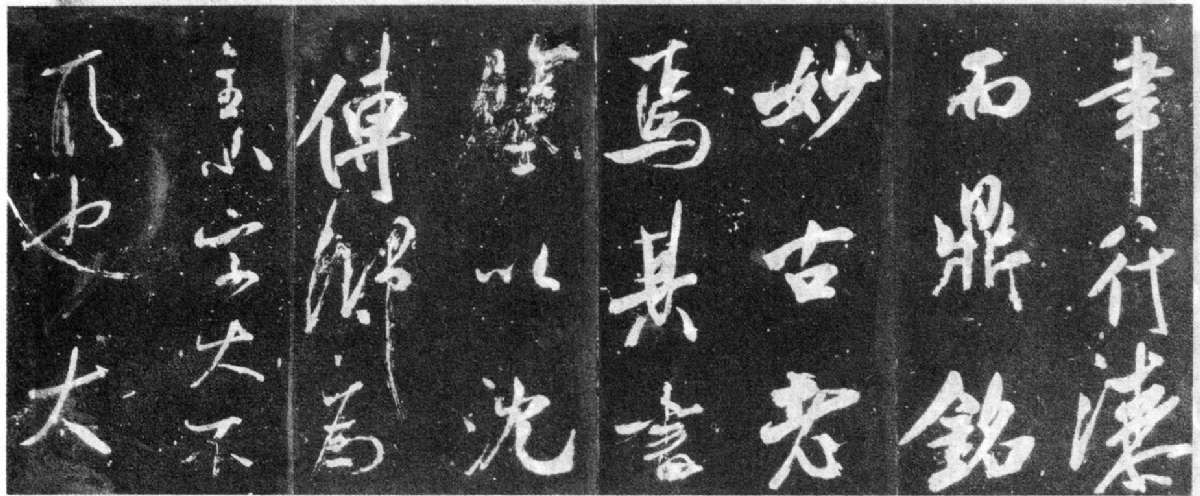 聿行漆
而鼎銘
妙古老
焉其書
壁以沈
傳師為
主小字大不
取也大